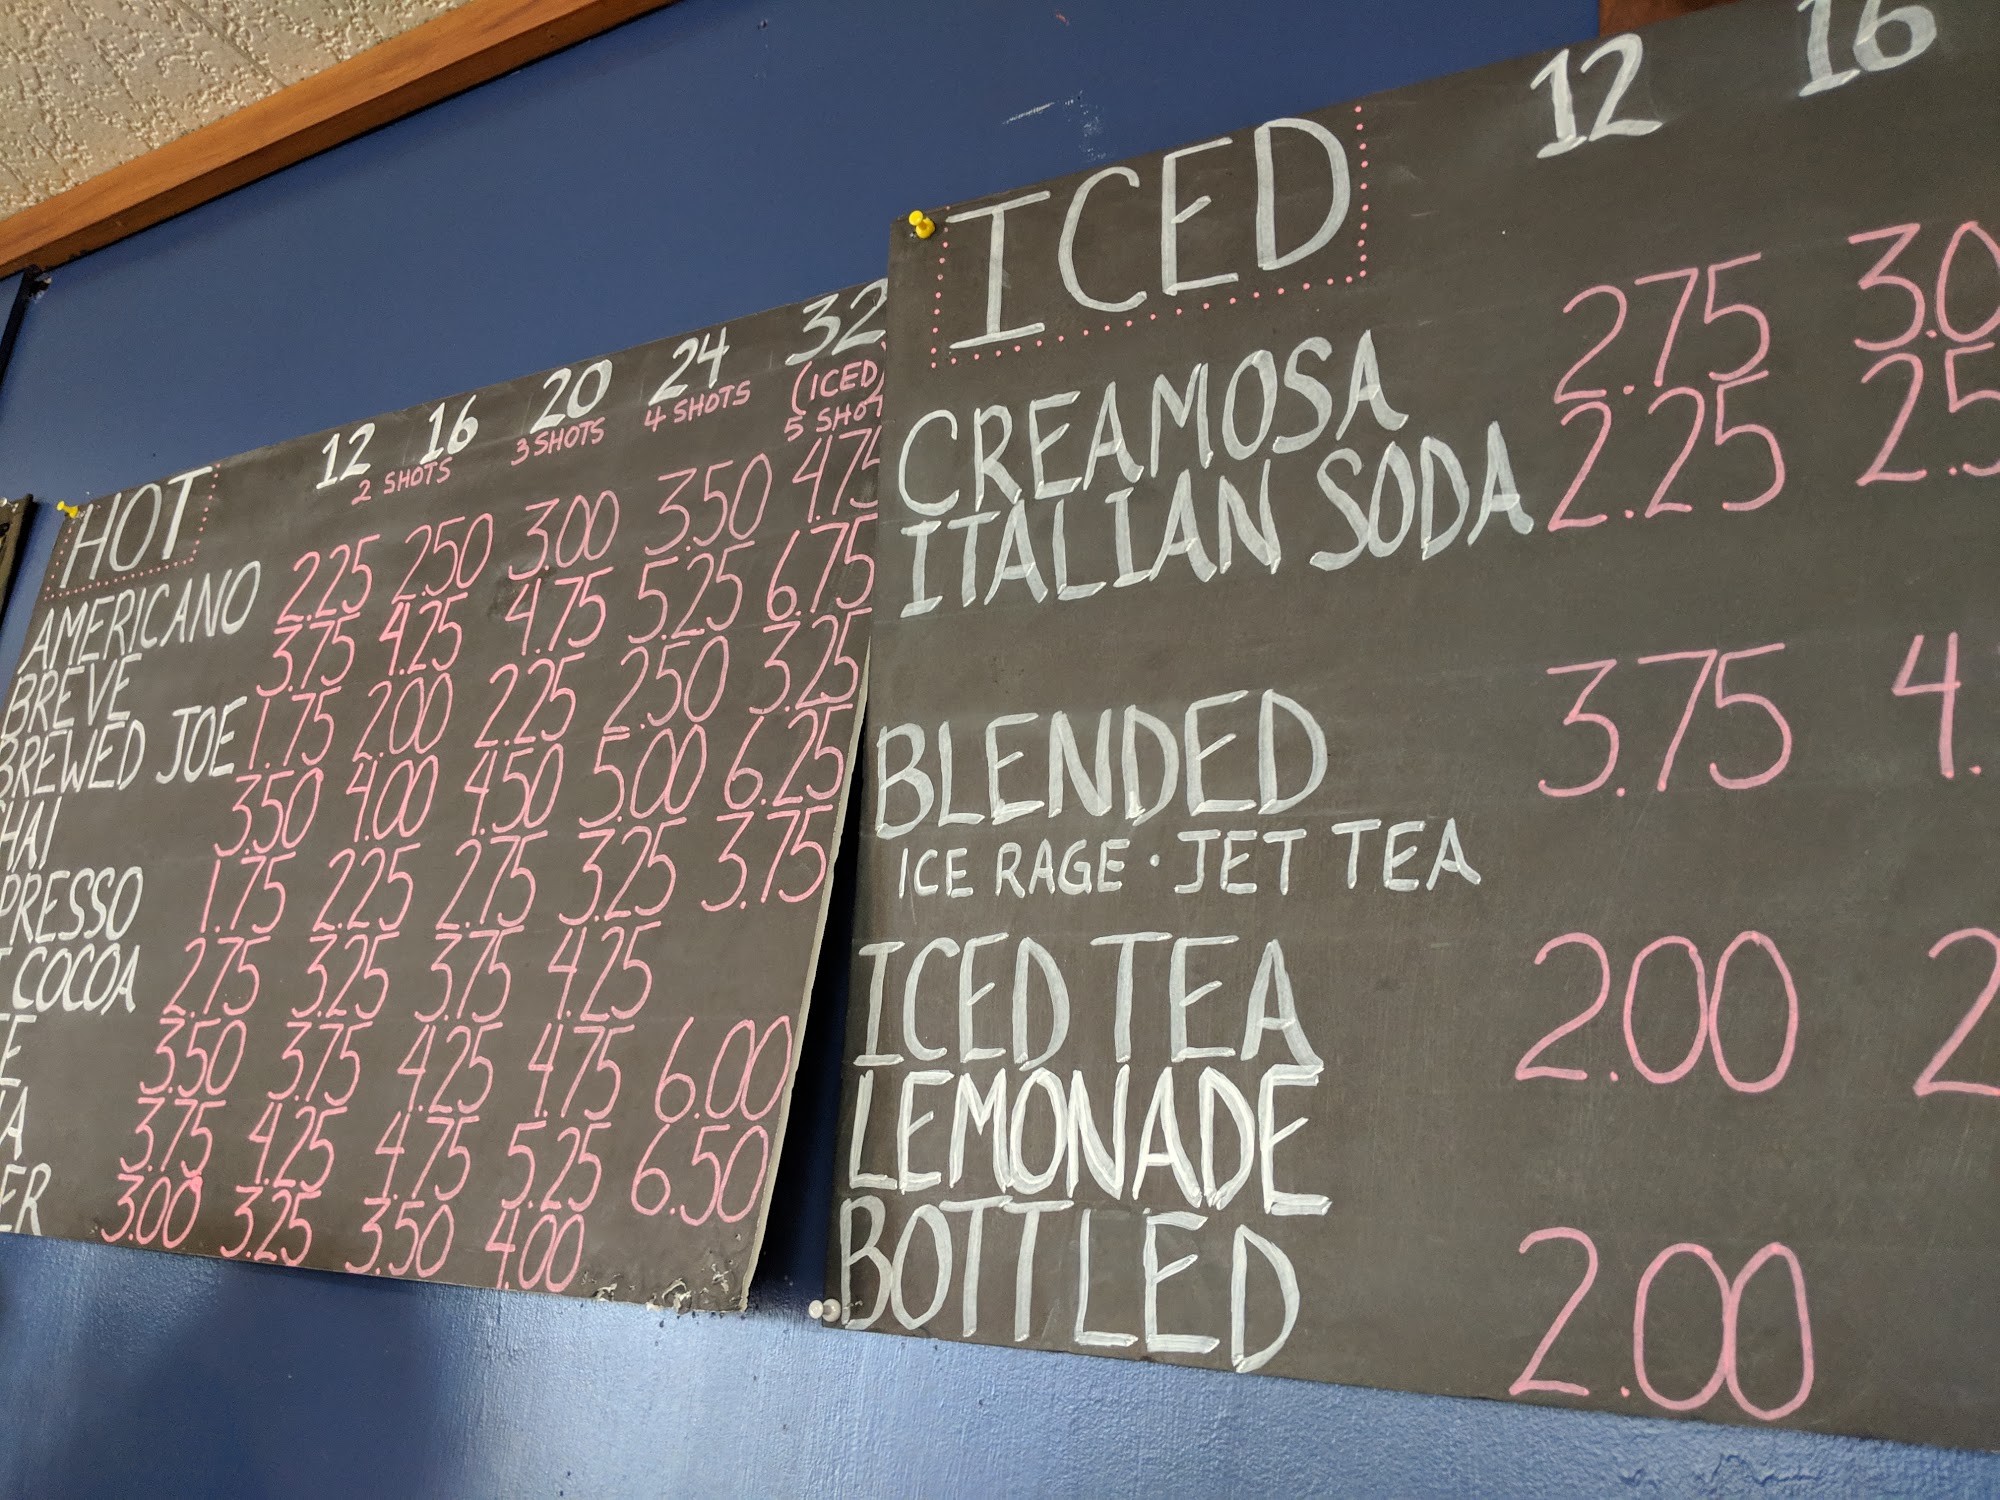 HOT 12 16 20 24 32
2 SHOTS 3 SHOTS 4 SHOTS (ICED)
5 SHOT
AMERICANO 2.25 2.50 3.00 3.50 4.75
BREVE 3.75 4.25 4.75 5.25 6.75
BREWED JOE 1.75 2.00 2.25 2.50 3.25
HAI 3.50 4.00 4.50 5.00 6.25
PRESSO 1.75 2.25 2.75 3.25 3.75
COCOA 2.75 3.25 3.75 4.25
E 3.50 3.75 4.25 4.75 6.00
A 3.75 4.25 4.75 5.25 6.50
ER 3.00 3.25 3.50 4.00
ICED 12 16
CREAMOSA 2.75 3.0
ITALIAN SODA 2.25 2.5
BLENDED 3.75 4.
ICE RAGE · JET TEA
ICED TEA 2.00 2
LEMONADE
BOTTLED 2.00